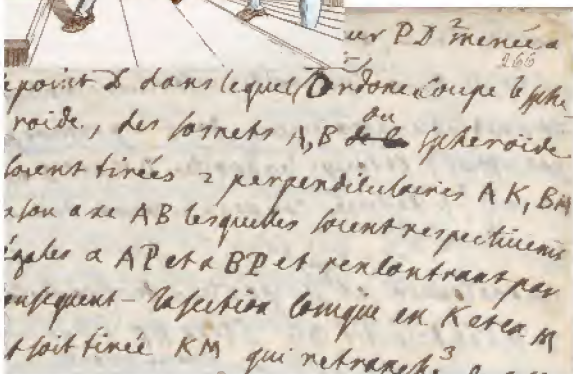 ur PD² menée a
266
point D dans lequel l'ordonnée coupe le sphe
roide, des somets A, B de la ou spheroide
soient tirées 2 perpendiculaires AK, BM
a son axe AB lesquelles soient respectivem
égales a AP et a BP et rencontrant par
onsequent la section conique en K et en M
t soit tirée KM qui retranche³